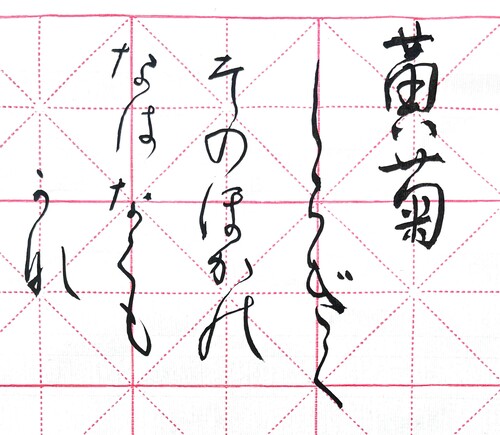 黄菊
しらぎく
そのほかの
なはなくも
かな